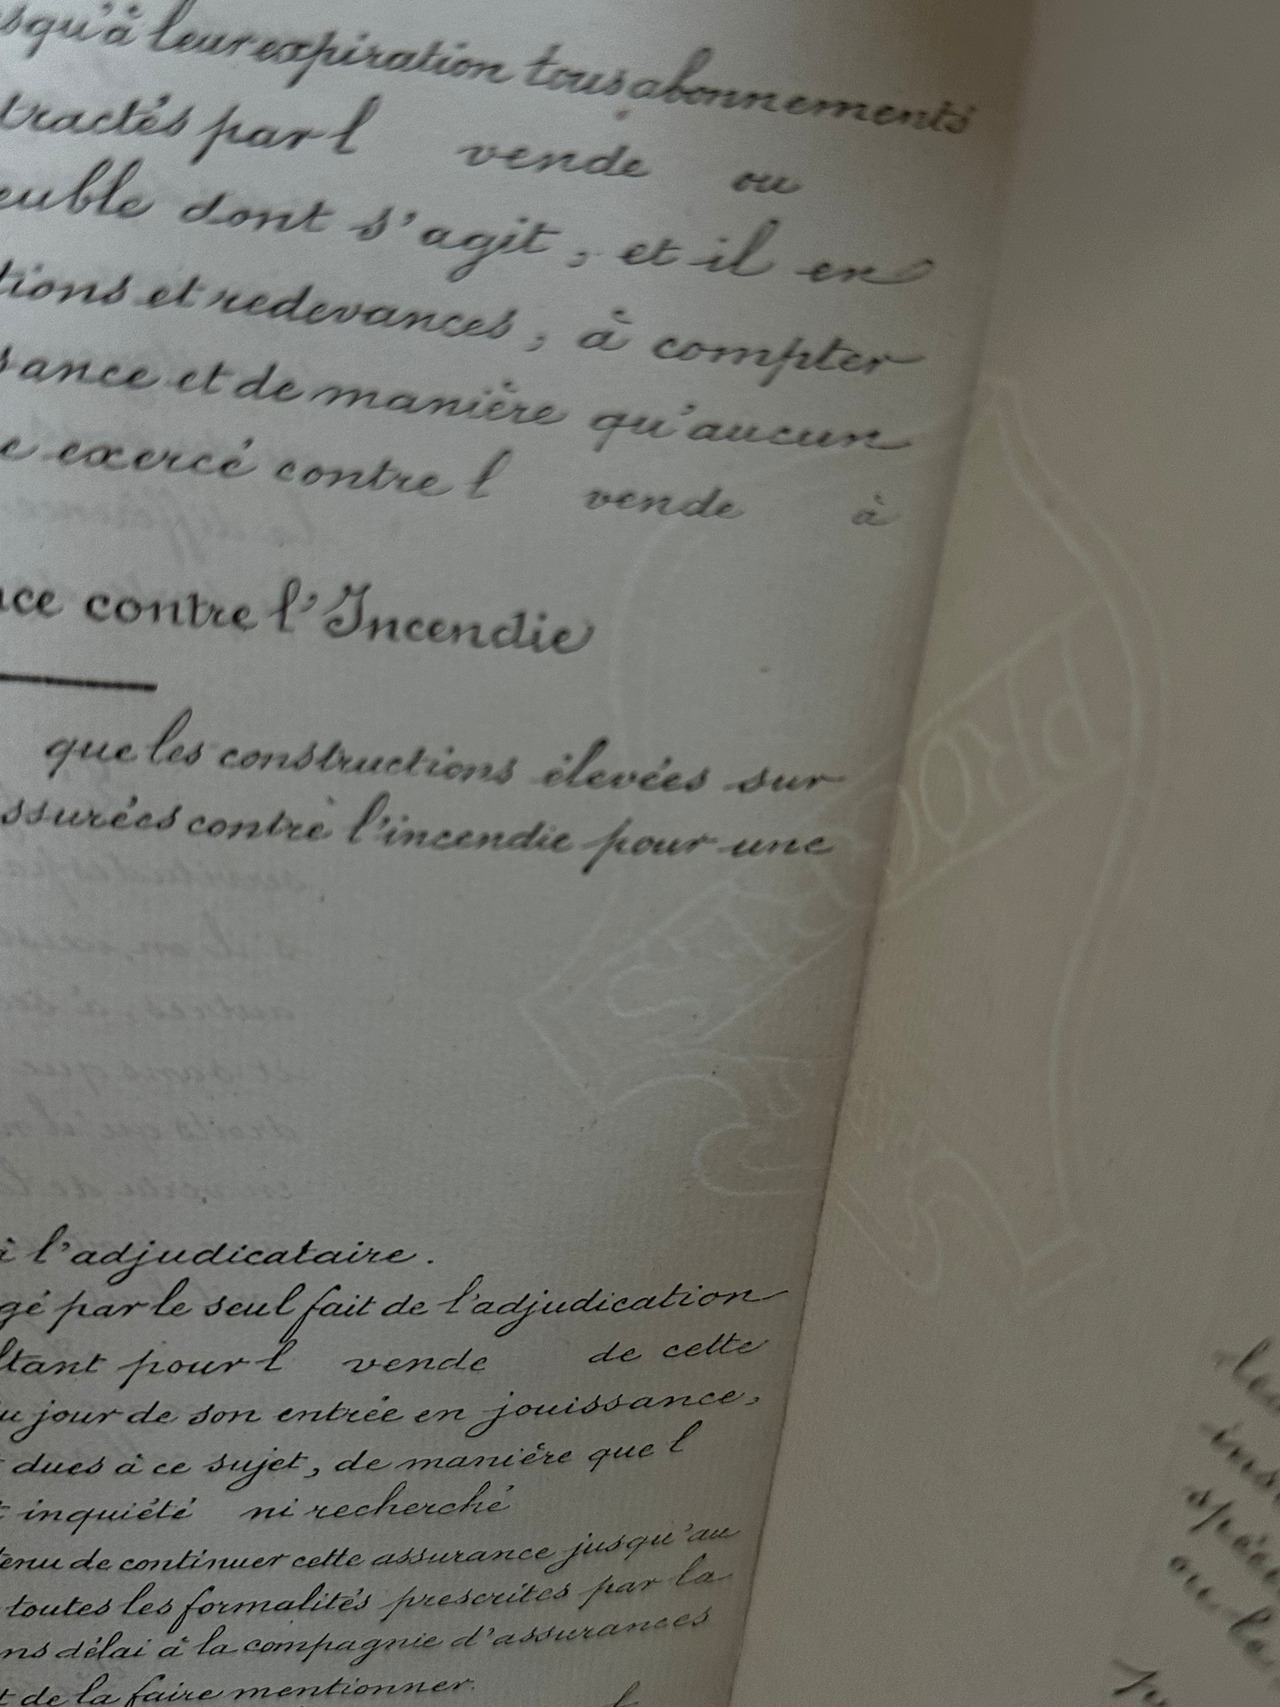 squ'à leur expiration tous abonnements
tractés par l vende ou
euble dont s'agit, et il en
tions et redevances, à compter
sance et de manière qu'aucun
e exercé contre l vende à
nce contre l'Incendie
que les constructions élevées sur
ssurées contre l'incendie pour une
à l'adjudicataire.
gé par le seul fait de l'adjudication
ltant pour l vende de cette
u jour de son entrée en jouissance,
t dues à ce sujet, de manière que l
t inquiété ni recherché
tenu de continuer cette assurance jusqu'au
toutes les formalités prescrites par la
ns délai à la compagnie d'assurances
t de la faire mentionner.